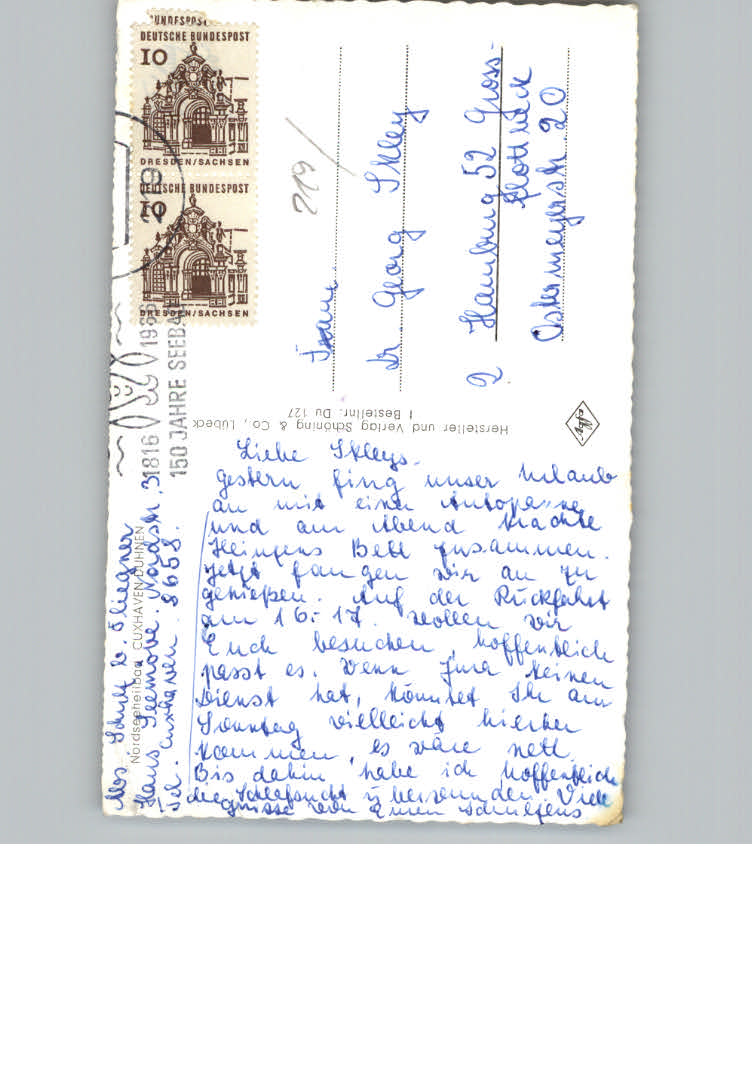 UNDESPOST
DEUTSCHE BUNDESPOST
10
DRESDEN/SACHSEN
DEUTSCHE BUNDESPOST
10
DRESDEN/SACHSEN
219
1816 1966
150 JAHRE SEEBAD
219/
Dr. Georg
2 Hamburg 52 Gross-
flottbeck
20
Hersteller und Verlag Schöning & Co., Lübeck
Bestellnr. Du 127
Nordseeheilbad CUXHAVEN-DUHNEN
Abs. Schulz b. Fliegner
Haus Seemöve. Nordstr. 3
Tel. Cuxhaven 8658.
Liebe
gestern fing unser Urlaub
an mit einer Autopanne
und am Abend krachte
Heinzens Bett zusammen.
Jetzt fangen wir an zu
genießen. Auf der Rückfahrt
am 16.-17. wollen wir
Euch besuchen, hoffentlich
passt es. Wenn keinen
Dienst hat, könntet Ihr am
Sonntag vielleicht hierher
kommen, es wäre nett.
Bis dahin, habe ich hoffentlich
die Schlafsucht überwunden. Viele
von Euren